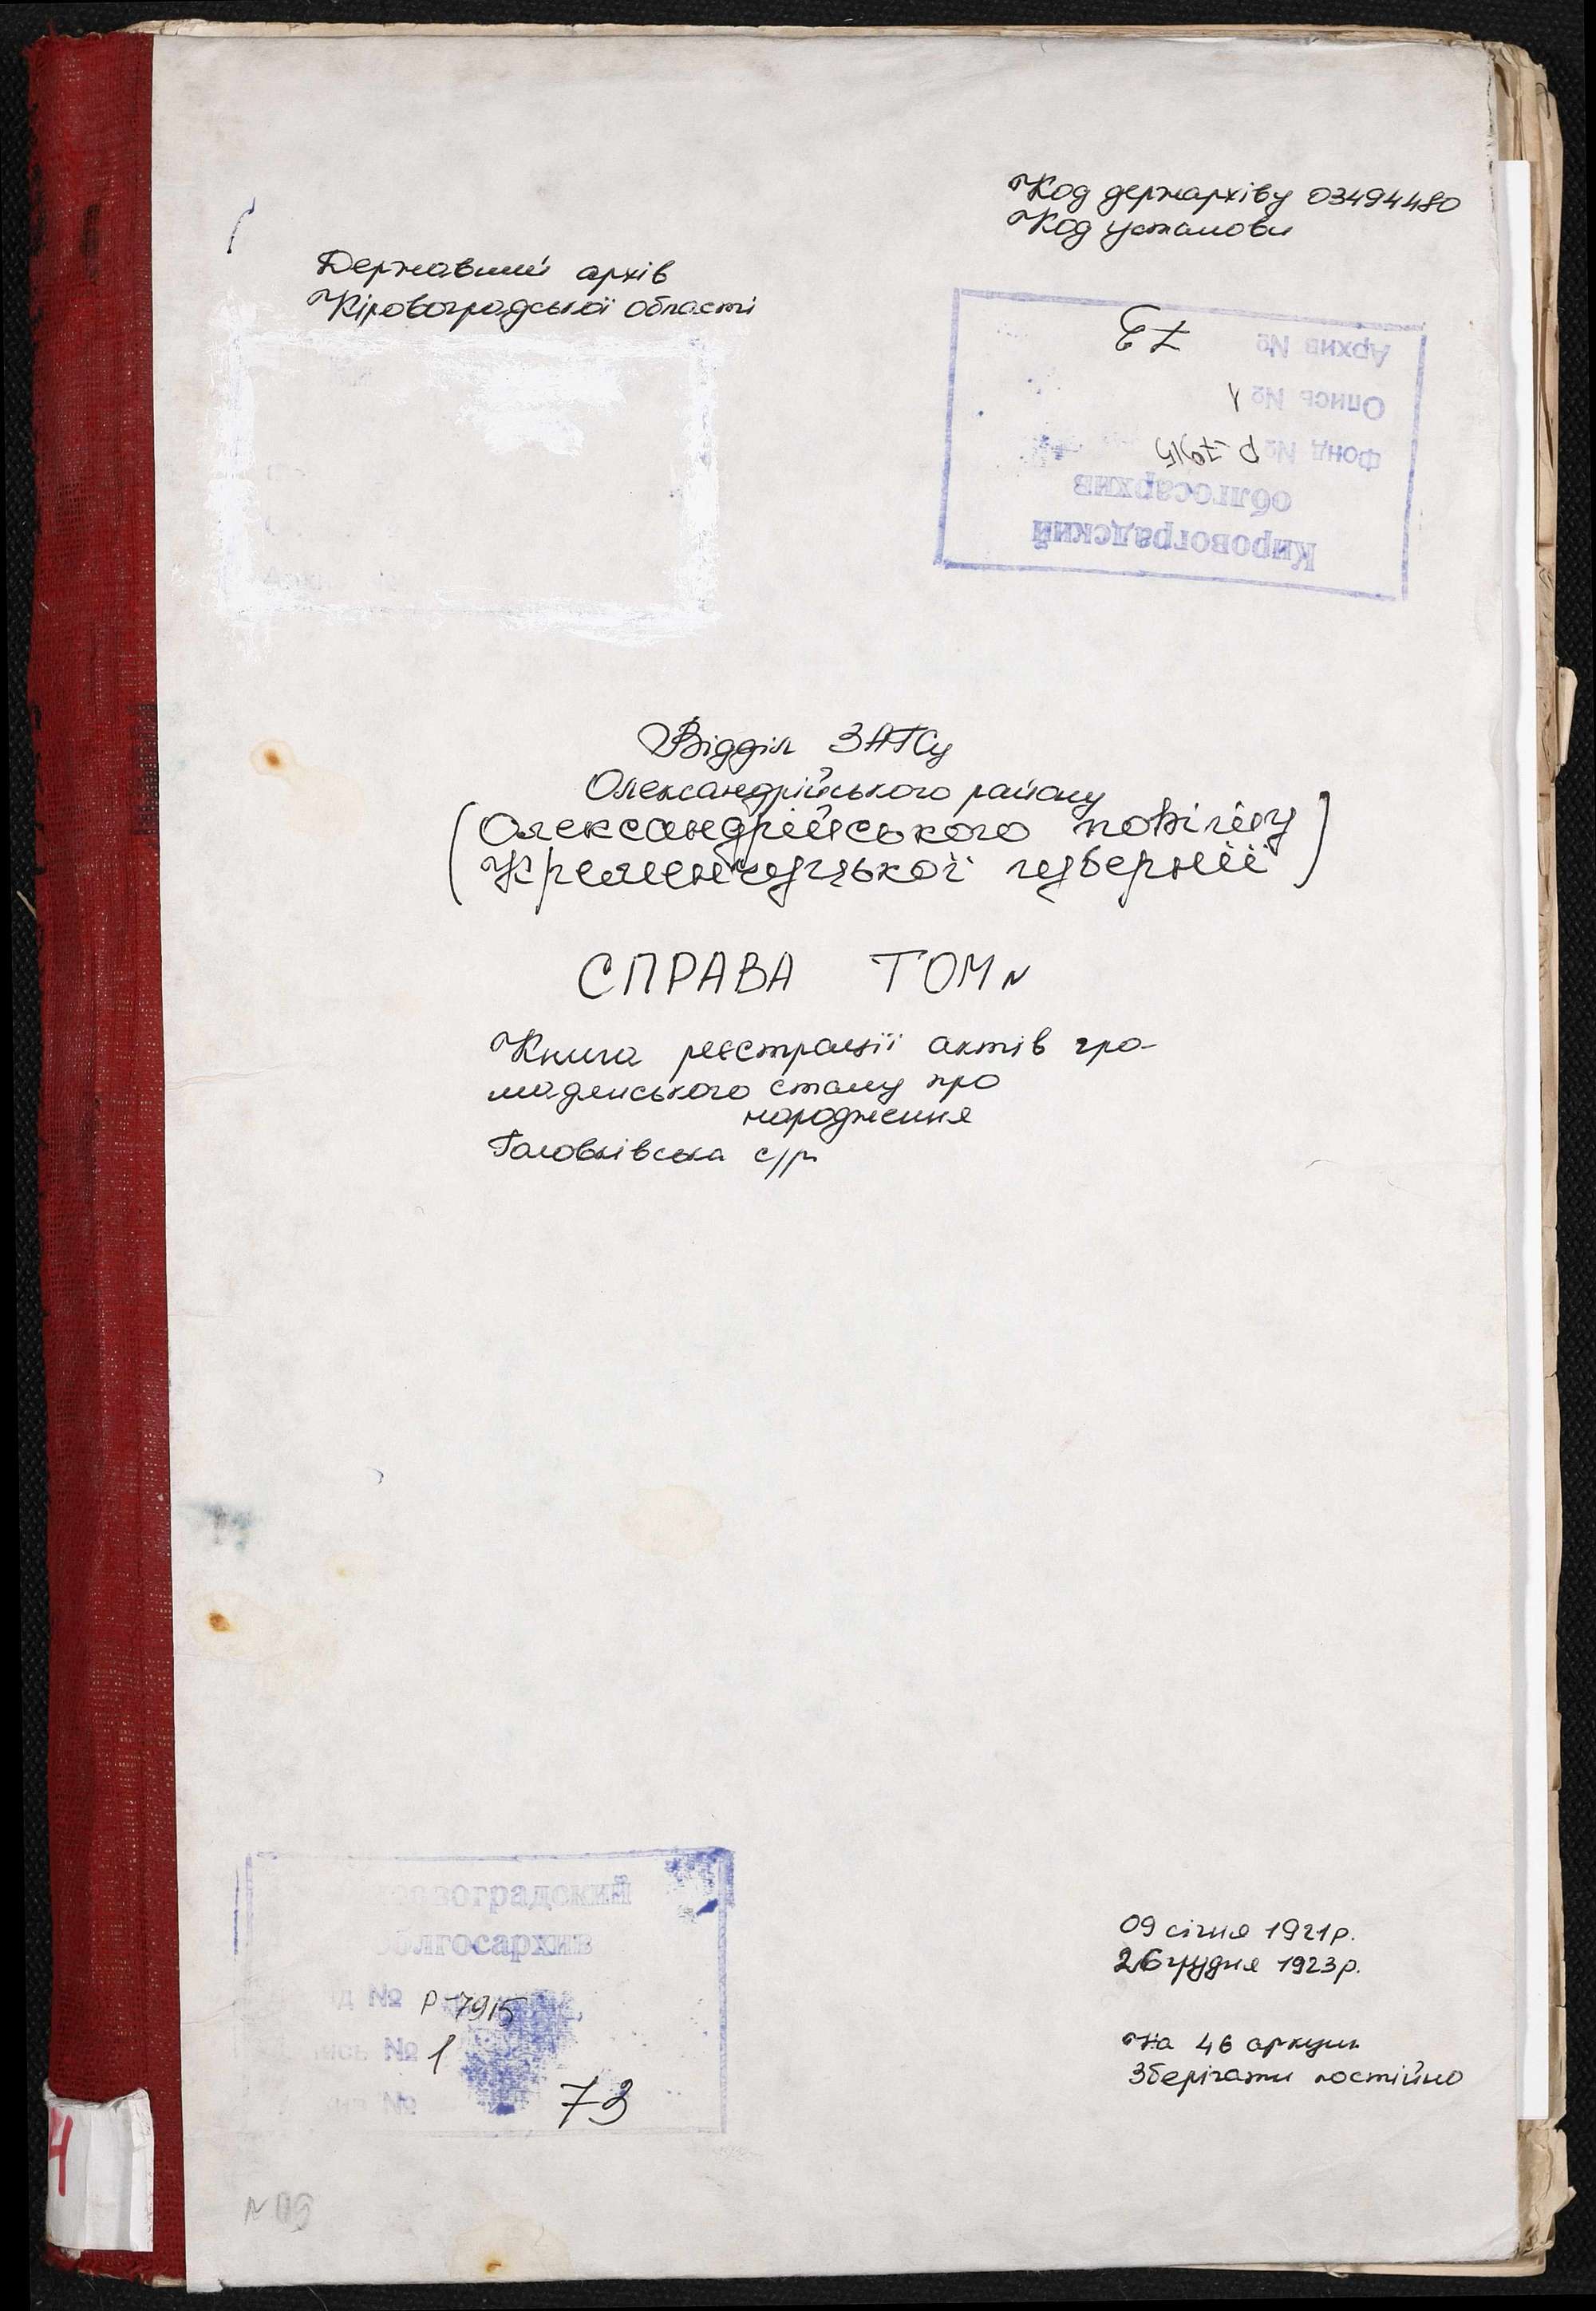 Код держархіву 03494480
Код установи
Державний архів
Кіровоградської області
Кировоградский
облгосархив
Фонд № Р-7915
Опись № 1
Архив № 73
Відділ ЗАГСу
Олександрійського району
(Олександрійського повіту
Кременчуцької губернії)
СПРАВА ТОМ №
Книга реєстрації актів гро-
мадянського стану про
народження
Головківська с/р
09 січня 1921р.
26 грудня 1923р.
На 46 аркуш
Зберігати постійно
облгосархив
№ Р-7915
№ 1
№ 73